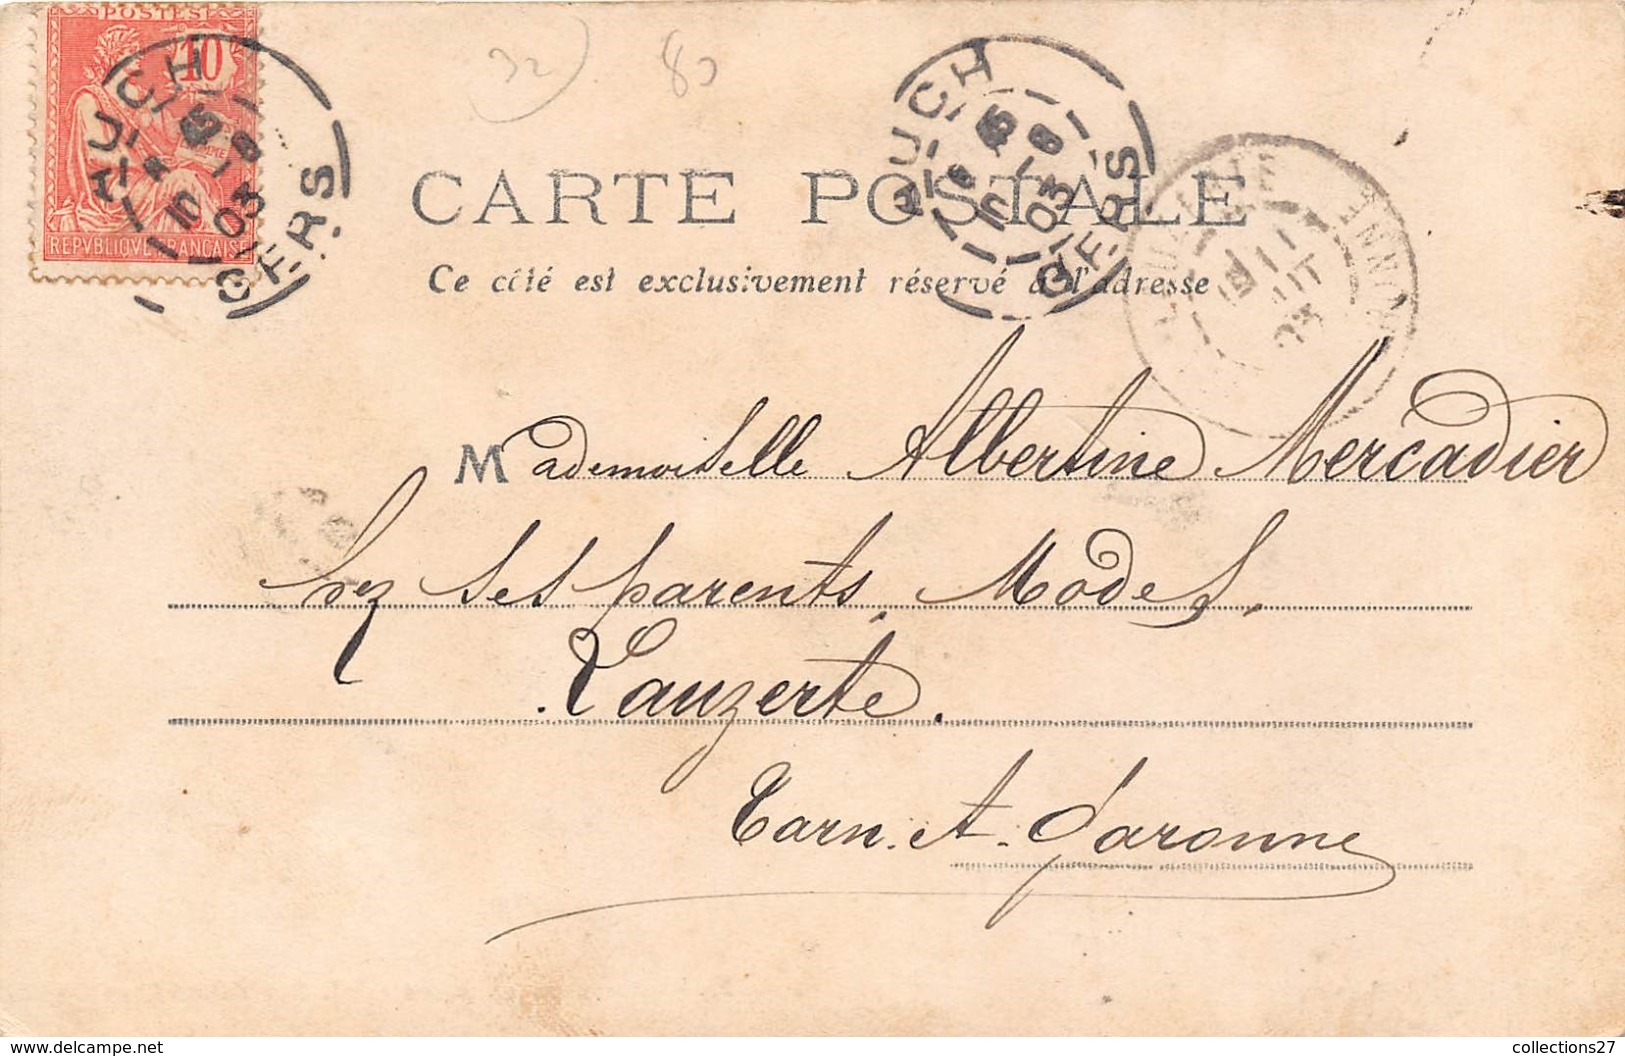 POSTES
10
REPVBLIQUE FRANÇAISE
AUCH
10 -8
03
GERS
32 83
AUCH
10 -8
03
GERS
CARTE POSTALE
Ce côté est exclusivement réservé à l'adresse
Mademoiselle Albertine Mercadier
hez ses parents, Modes,
Lauzerte.
Tarn. et. Garonne
collections27